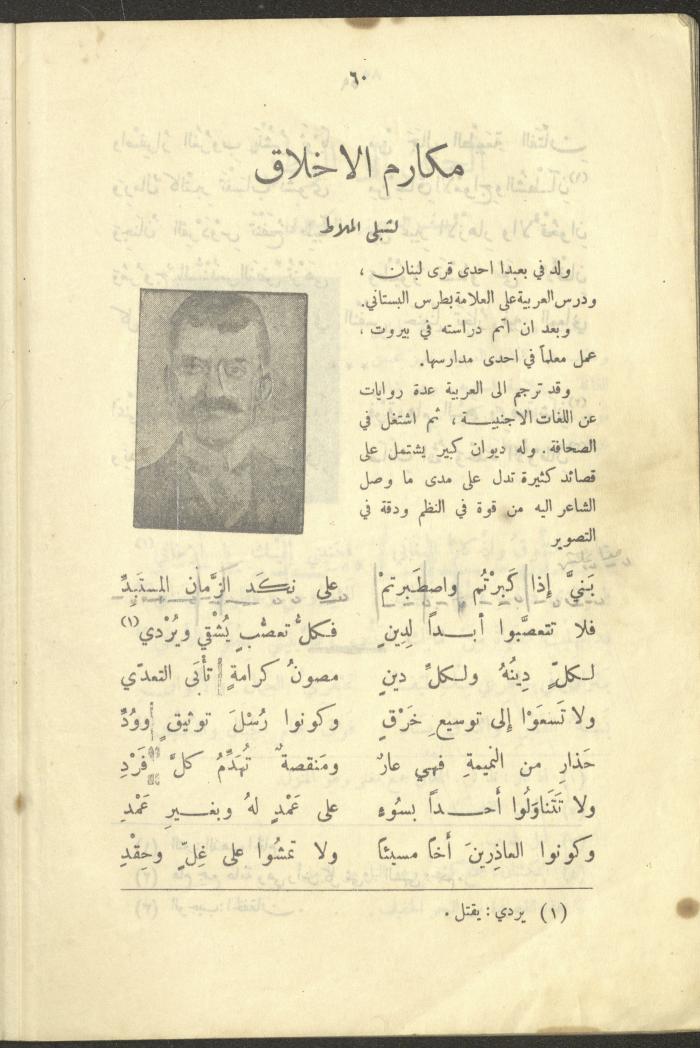 ٦٠
مكارم الاخلاق
لشبلي الملاط
ولد في بعبدا احدى قرى لبنان ،
ودرس العربية على العلامة بطرس البستاني.
وبعد ان اتم دراسته في بيروت ،
عمل معلماً في احدى مدارسها.
وقد ترجم الى العربية عدة روايات
عن اللغات الاجنبية ، ثم اشتغل في
الصحافة . وله ديوان كبير يشتمل على
قصائد كثيرة تدل على مدى ما وصل
الشاعر اليه من قوة في النظم ودقة في
التصوير
بَنيَّ إذا كَبِرْتُم واصطَبرتمْ على نكَد الزَّمان المستَبِدِّ
فلا تتعصَّبوا أبداً لِدينٍ فكلُّ تعصُّبٍ يُشْقِي ويُرْدي (١)
لكلٍّ دِينُهُ ولكلِّ دينٍ مصونُ كرامةٍ تأْبَى التعدّي
ولا تَسعَوْا إلى توسيعِ خَرْقٍ وكونوا رُسْلَ توثيقٍ ووُدِّ
حَذارِ من النميمةِ فهي عارٌ ومَنقصةٌ تُهَدِّمُ كلَّ فَرْدِ
ولا تَتَناوَلُوا أَحداً بسُوءٍ على عَمْدٍ لهُ وبغيرِ عَمْدِ
وكونوا العاذِرينَ أَخاً مسيئاً ولا تمشُوا على غِلٍّ وحِقْدِ
(١) يردي : يقتل .